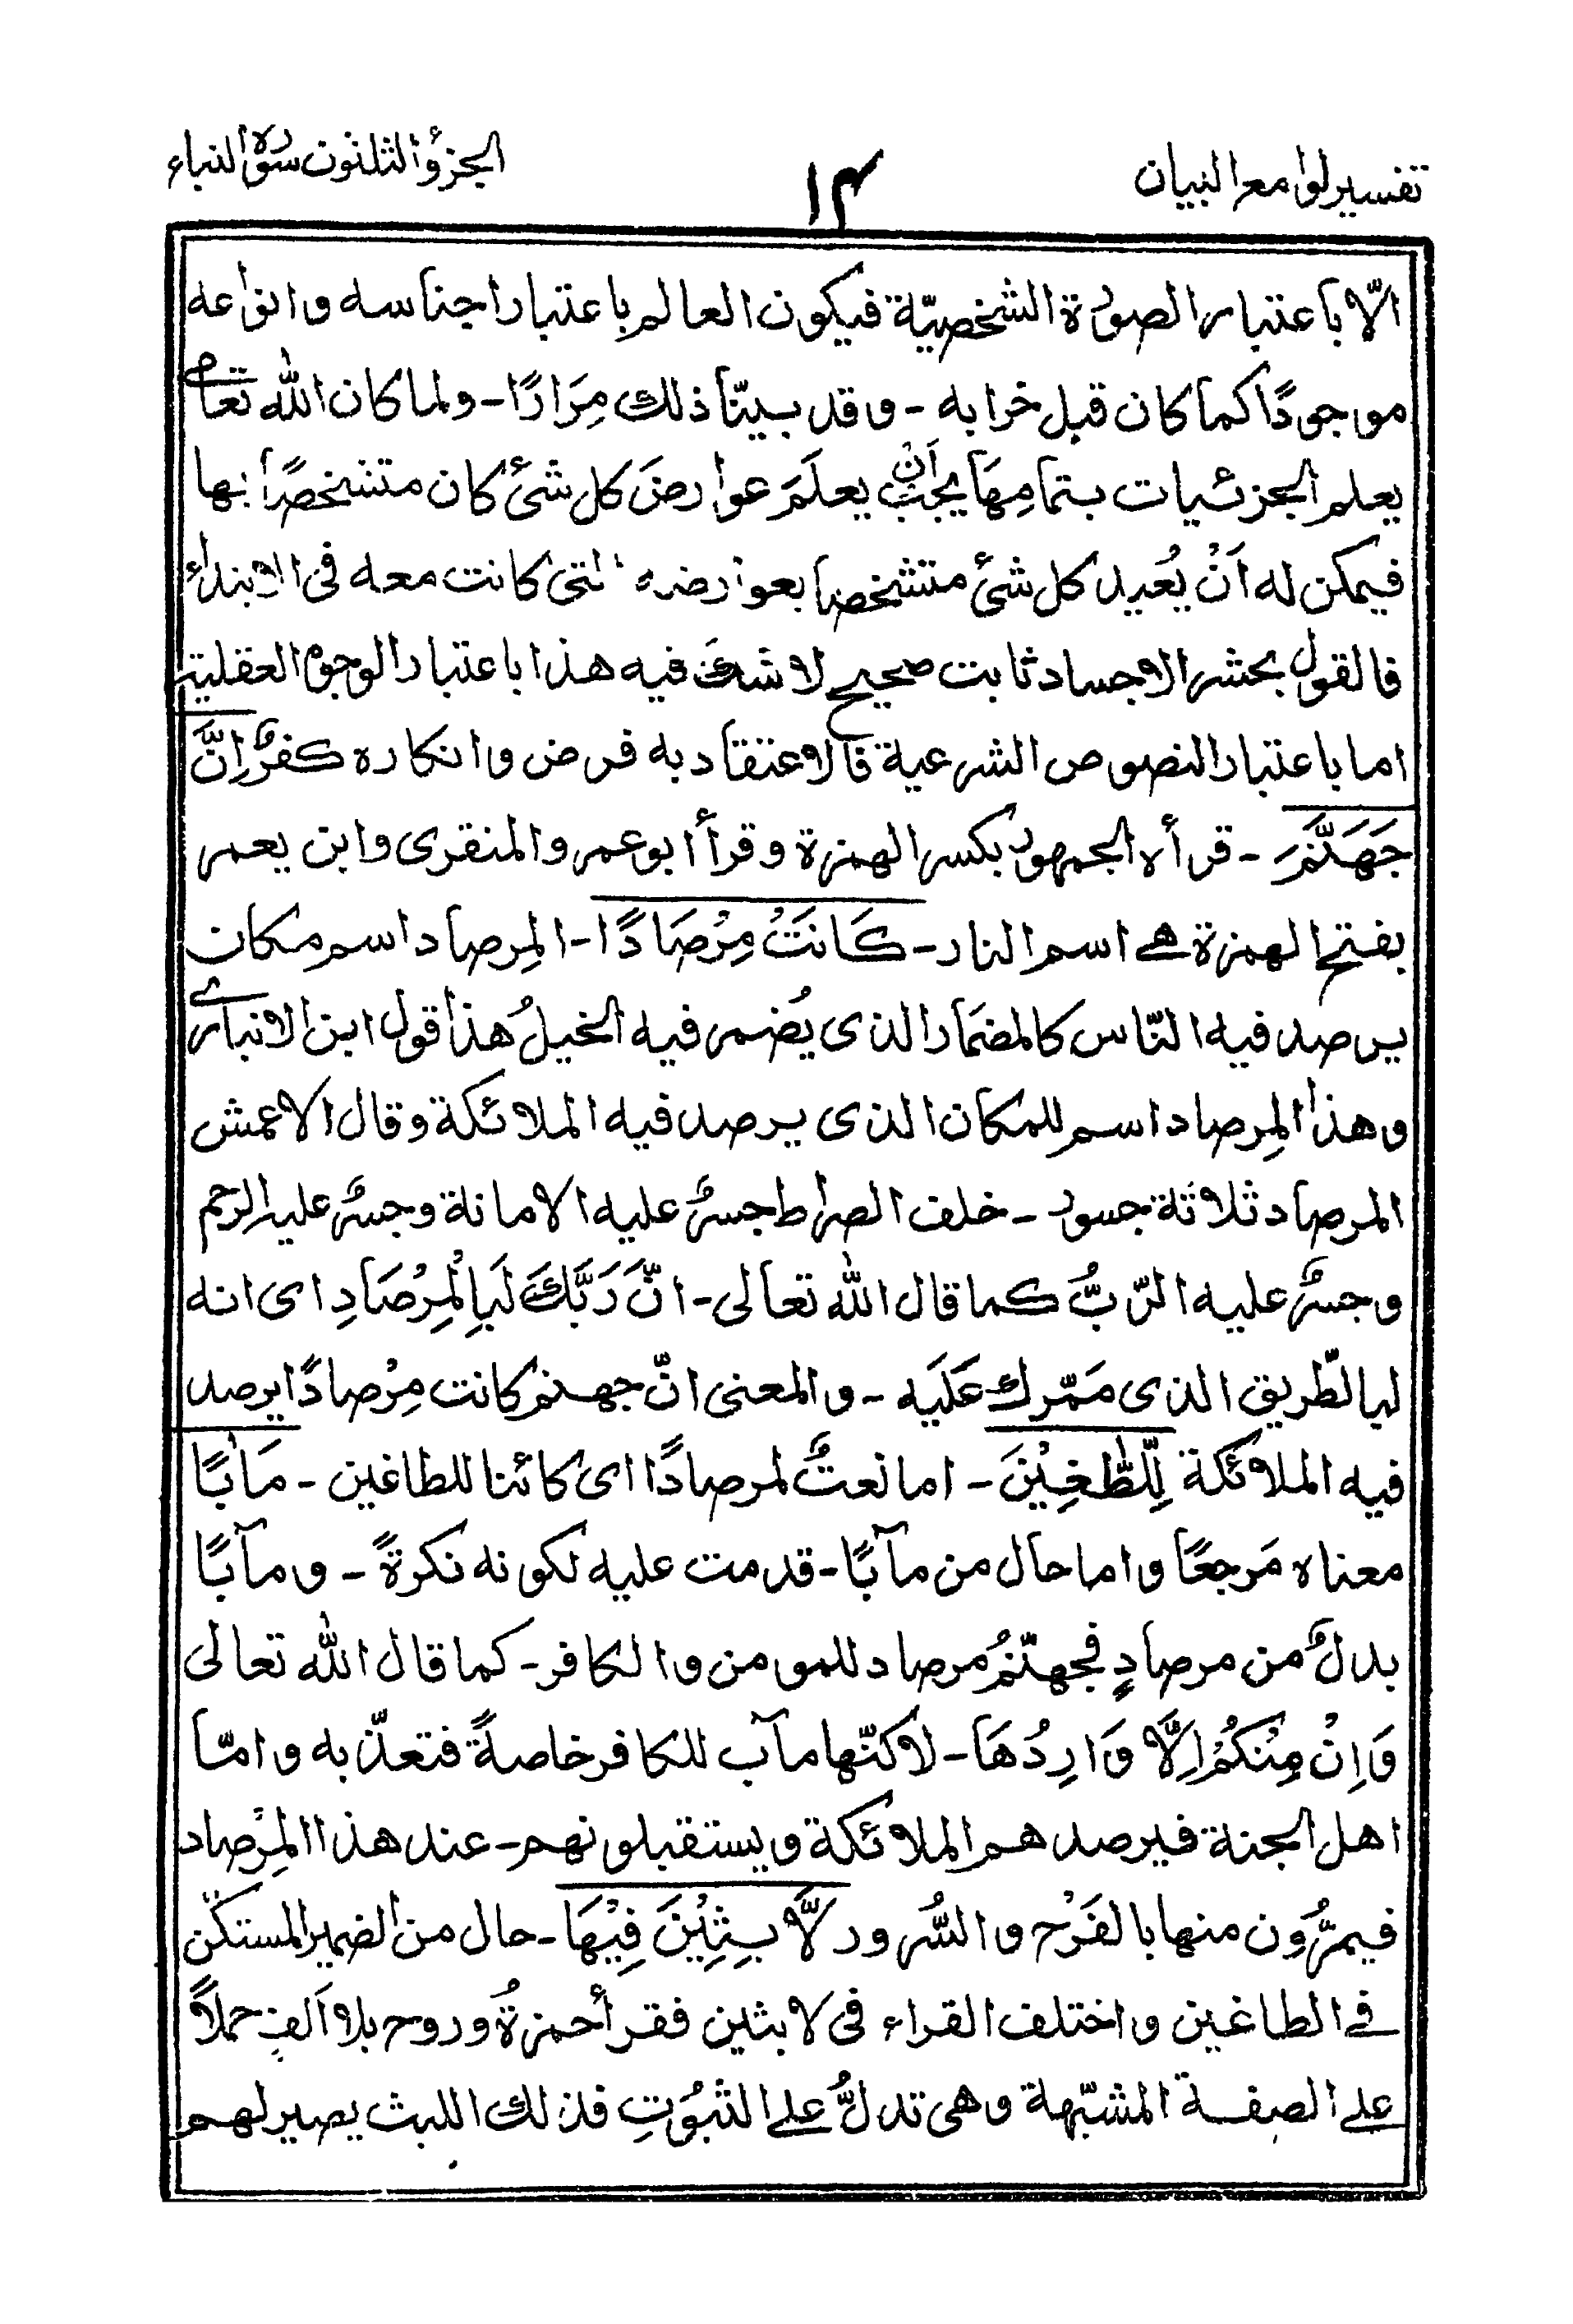 تفسیر لوامع البیان
۱۴
الجزؤ الثلثون سورۃ النباء
الّا باعتبار الصورة الشخصیّة فیکون العالم باعتبار اجناسه وانواعه
موجودًا کما کان قبل خرابه - وقد بیّنّا ذلك مِرَارًا - ولما کان الله تعالٰی
یعلم الجزئیات بتمامِهَا یجب اَنْ یعلَمَ عوارضَ کل شیٔ کان متشخصًا بها
فیمکن له اَنْ یُعید کل شیٔ متشخصا بعوارضه التی کانت معه فی الابتداء
فالقول بحشر الاجساد ثابت صحیح لا شكَ فیه هذا باعتبار الوجوہ العقلیة
اما باعتبار النصوص الشرعیة فالاعتقاد به فرض وانکاره کفرٌ اِنَّ
جَهَنَّمَ - قرأه الجمهور بکسر الهمزة وقرأ ابو عمر والمنقری وابن یعمر
بفتح الهمزة هے اسم النار - كَانَتْ مِرْصَادًا - المِرصاد اسم مکان
یرصد فیه النّاس کالمضمار الذی یُضمر فیه الخیلُ هٰذا قول ابن الانباری
وهذا المِرصاد اسم للمکان الذی یرصد فیه الملائکة وقال الاعمش
المرصاد ثلاثة جسور - خلف الصراط جسرٌ علیه الامانة وجسرٌ علیه الرحم
وجسرٌ علیه الرّبُّ کما قال الله تعالی - انَّ رَبَّكَ لَبِالْمِرْصَادِ ای انه
لبالطّریق الذی مَمّرك عَلَیه - والمعنی انّ جهنم کانت مِرْصادًا یرصد
فیه الملائکة لِّلطّٰغِیْنَ - اما نعتٌ لمرصادًا ای کائنا للطاغین - مَاٰبًا
معناه مَرجعًا واما حال من مآبًا - قدمت علیه لکونه نکرةً - ومآبًا
بدلٌ من مرصادٍ فجهنّمُ مرصاد للمومن والکافر - کما قال الله تعالی
وَاِنْ مِنْکُمْ اِلَّا وَارِدُهَا - لاکنّها مآب للکافر خاصةً فتعذّبه وامّا
اهل الجنة فیرصدهم الملائکة ویستقبلونهم - عند هذا المِرْصاد
فیمرُّون منها بالفَرْح والسُّرور لّٰبِثِیْنَ فِیْهَا - حال من الضمیر المستکنّ
فے الطاغین واختلف القراء فی لابثین فقرأ حمزةُ وروح بلا اَلفٍ حملاً
علے الصفة المشبّهة وهی تدلُّ علے الثبُوتِ فذلك اللبث یصیر لهم